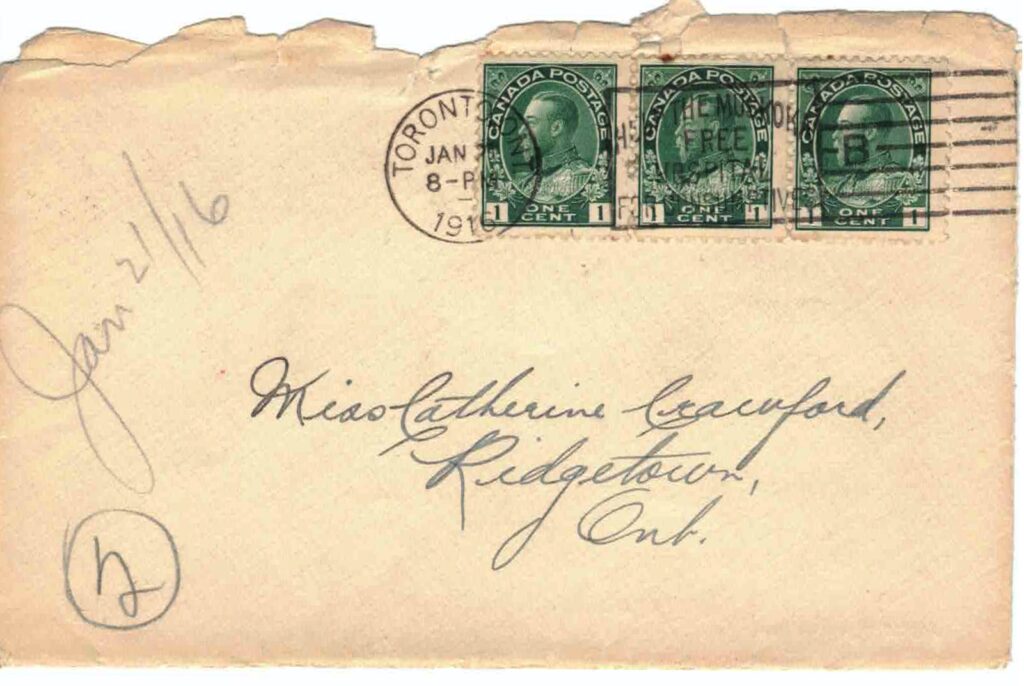 TORONTO, ONT
JAN
8-PM
1916
CANADA POSTAGE
ONE CENT
1 1
CANADA POSTAGE
ONE CENT
1 1
CANADA POSTAGE
ONE CENT
1 1
THE
FREE
HOSPITAL
FOR
B
Jan 21/16
Miss Catherine Crawford,
Ridgetown,
Ont.
2